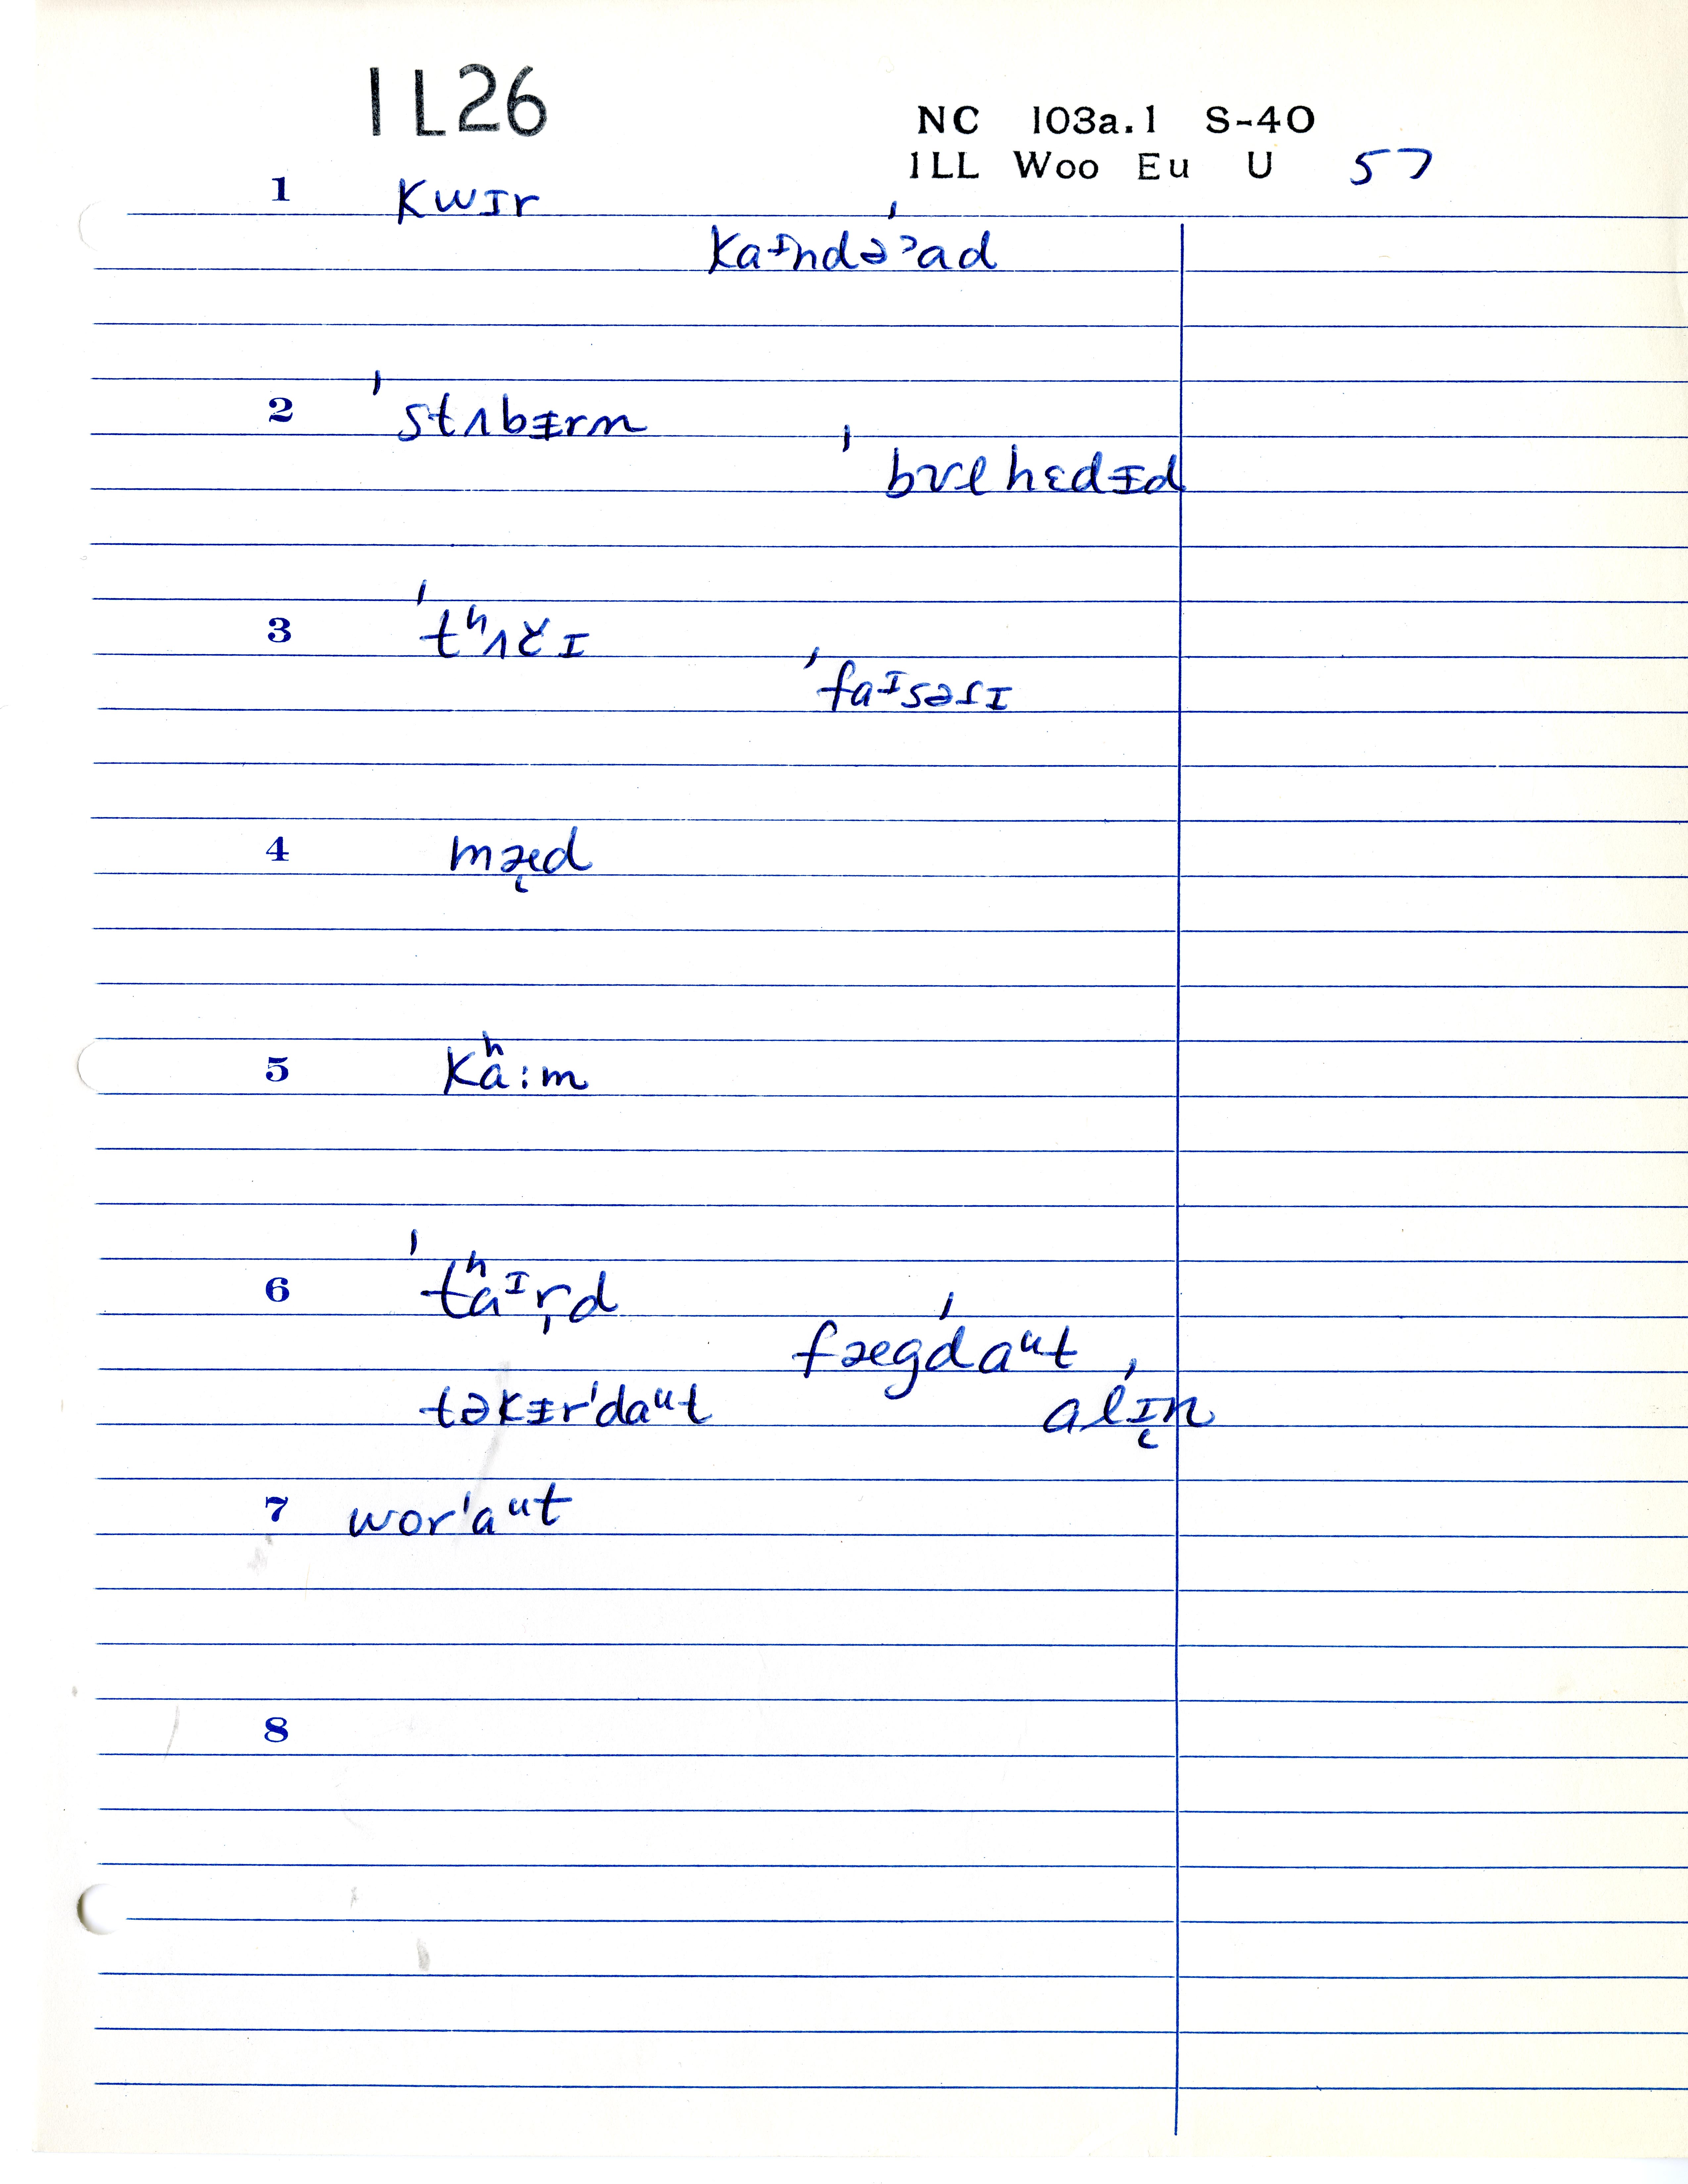 IL26
NC 103a.1 S-40
ILL Woo Eu U 57
1 kwɪr
ˈkaᵻndəˀad
2 ˈstʌbᵻrn
ˈbʊlhɛdᵻd
3 ˈtʰʌčɪ
ˈfaᶦsəsɪ
4 mæ̨d
5 kʰa:m
6 ˈtʰaᶦr̩d
fægˈdaᵘt
təkᵻrˈdaᵘt ˈalɪ̨n
7 worˈaᵘt
8